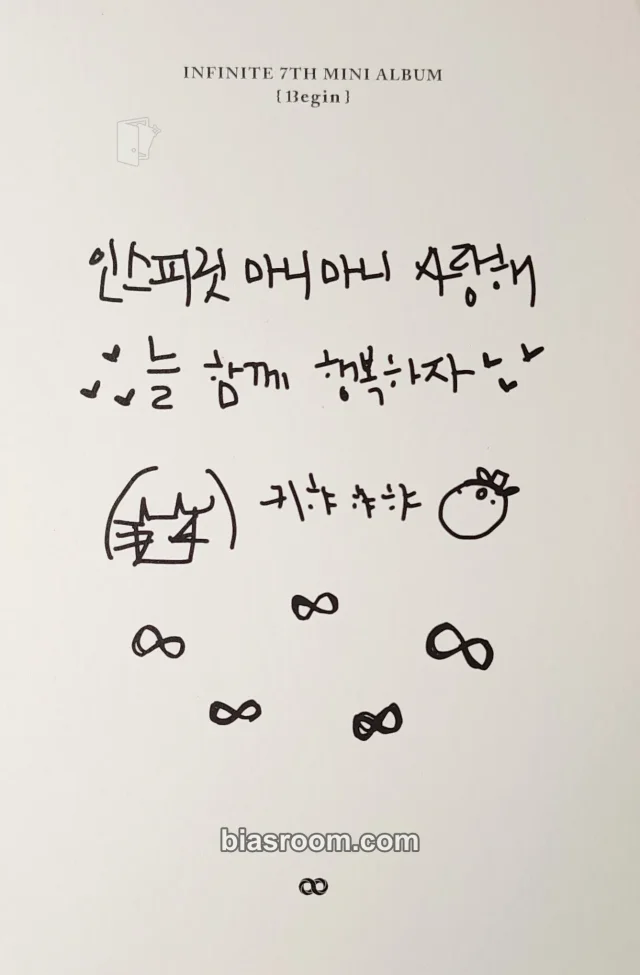 INFINITE 7TH MINI ALBUM
{ 13egin }
인스피릿 마니마니 사랑해
늘 함께 행복하자
꺄햐
biasroom.com